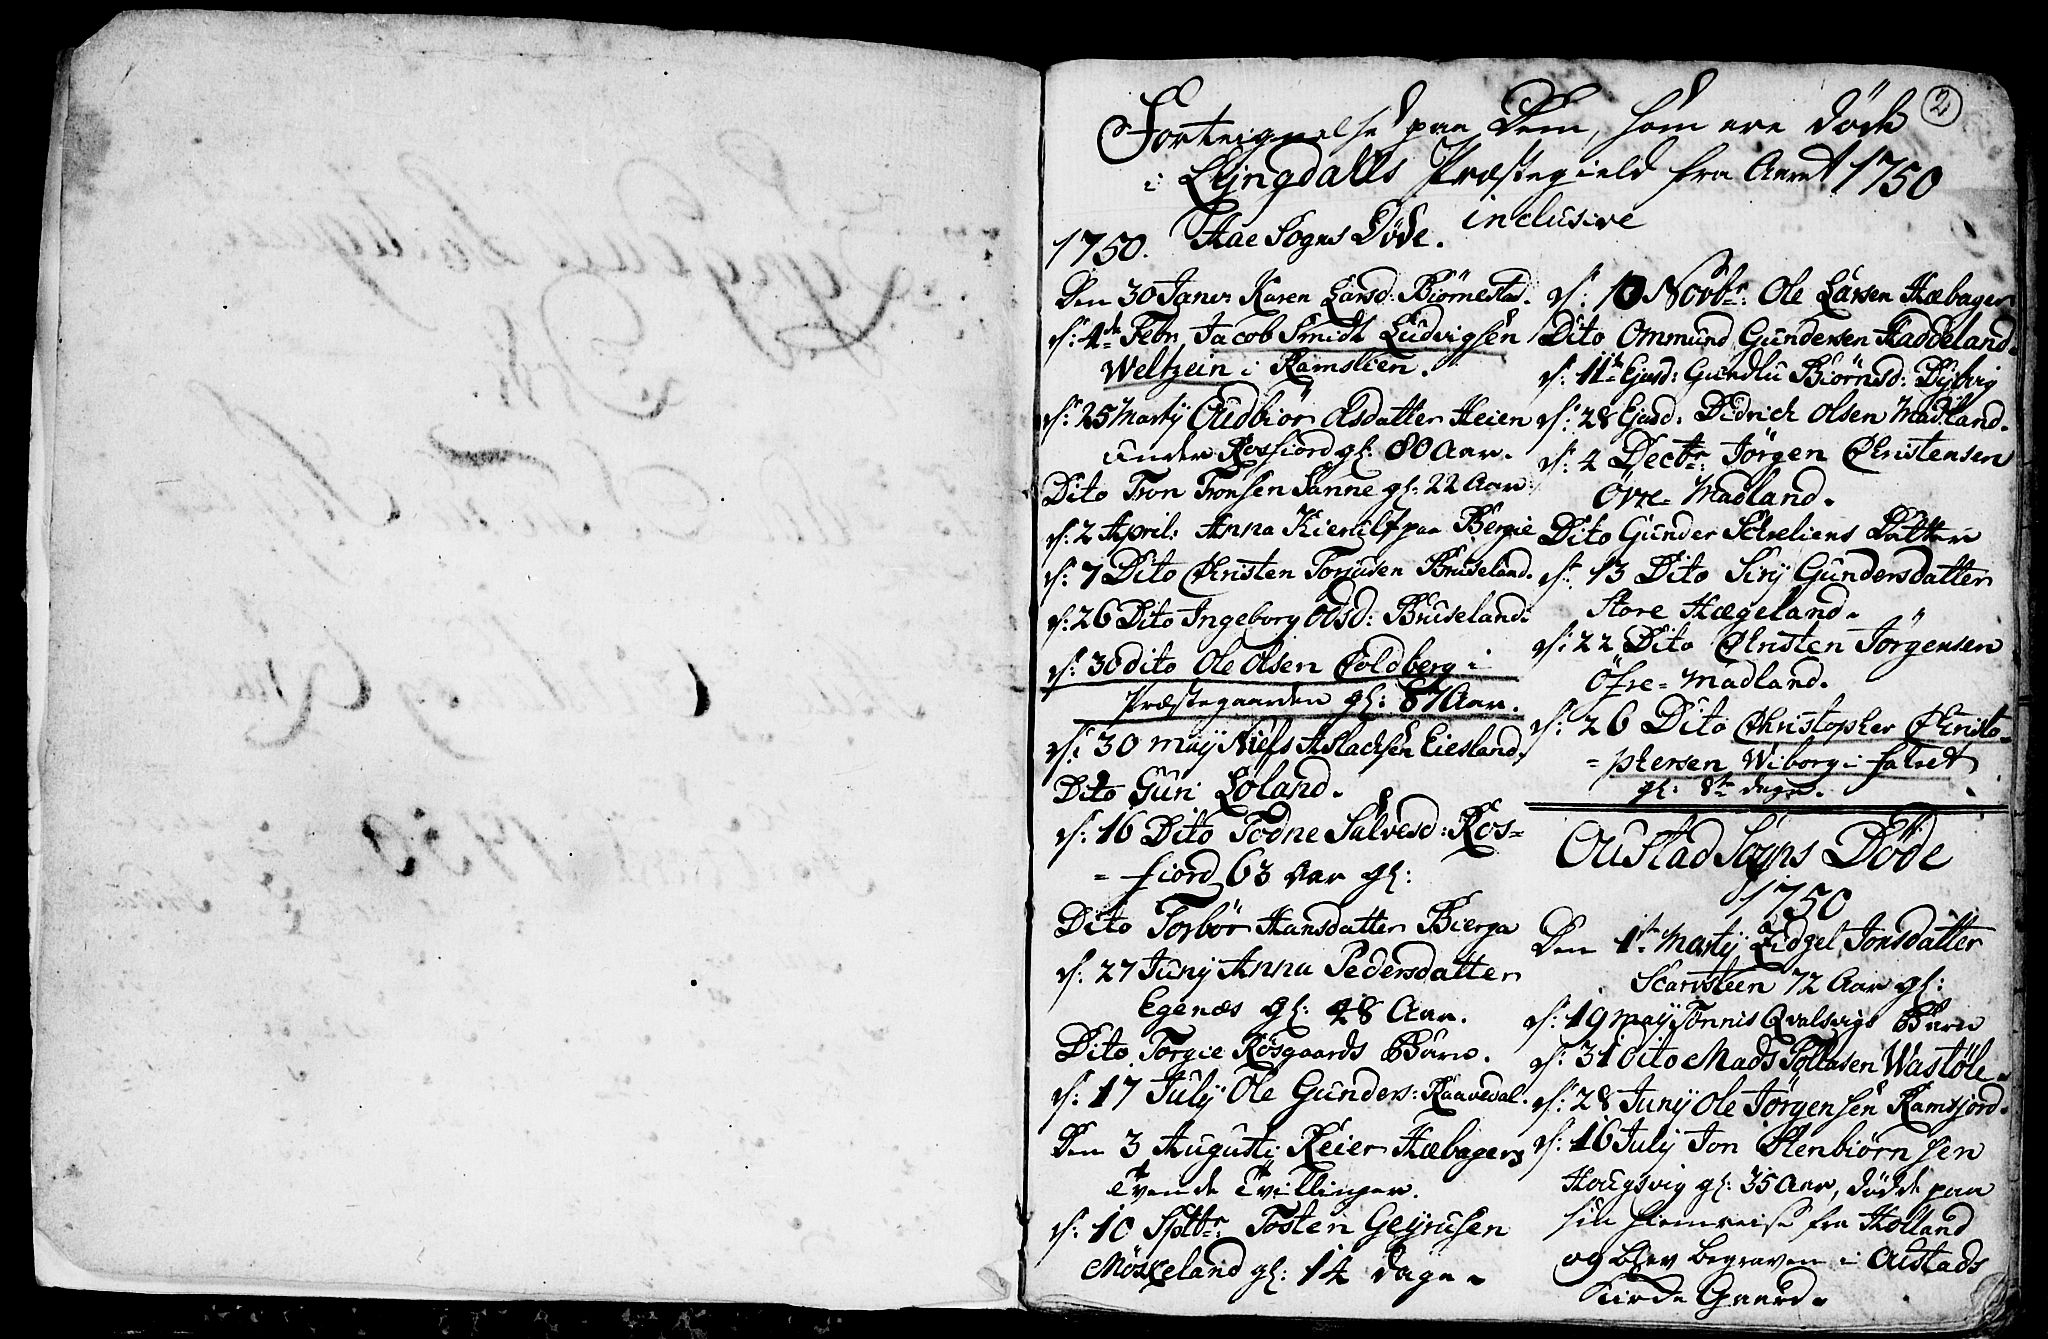 2
Forteignelse paa Dem, som ere døde
i Lÿngdalls Præstegield fra Aaret 1750
inclusive
1750. Aae Sogns Døde.
Den 30 Janv: Karen Larsd: Biørnestad.
d: 4de Febr. Jacob Smidt Ludvigsen
Weltzein i Ramslien.
d: 25 Martÿ Audbiør Olsdatter Heien
under Rosfiord gl: 80 Aar.
Dito Tron Tronsen Sanne gl: 22 Aar
d: 2 April: Anna Kierulf paa Bergie
d: 7 Dito Christen Torjusen Bruseland.
d: 26 Dito Ingeborg Odsd: Bruseland.
d: 30 dito Ole Olsen Coldberg i
Præstegaarden gl: 87 Aar.
d: 30 Maÿ Niels Aslachsen Eiesland.
Dito Guri Løland.
d: 16 Dito Todne Salvesd: Ros=
=fiord 63 Aar gl:
Dito Torbør Hansdatter Bierga
d: 27 Junÿ Anna Pedersdatter
Egenæs gl: 48 Aar.
Dito Torgie Røsgaards Barn.
d: 17 Julÿ Ole Gunders: Raavedal.
Den 3 Augusti Reier Hæbagers
tvende Tvillinger.
d: 10 Sptbr: Tosten Geÿrusen
Møskeland gl: 14 Dage.
d: 10 Novbr: Ole Larsen Hæbager
Dito Ommund Gundersen Haddeland.
d: 11te Ejusd: Gundlu Biørnsd: Dÿbvig
d: 28 Ejusd: Didrich Olsen Madland.
d: 4 Decbr: Jørgen Christensen
Øvre= Madland.
Dito Gunder Sælveliens Datter
d: 13 Dito Sirÿ Gundersdatter
Store Hægeland.
d: 22 Dito Christen Jørgensen
Øfre= Madland.
d: 26 Dito Christopher Christo=
=phersen Wiborg i Farret
gl: 8te dage.
Oustad Sogns Døde
1750
Den 1te Martÿ Zidzel Jonsdatter
Scarvsteen 72 Aar gl:
d: 19 Maÿ Tønnis Qvalsvigs Barn
d: 31 dito Mads Tollasen Wastøle.
d: 28 Junÿ Ole Jørgensen Ramsfjord.
d: 16 Julÿ Jon Stenbiørnsen
Hougsvig gl: 35 Aar, døde paa
sin Hiemreise fra Holland
og blev begraven i Austads
Kirke Gaard.